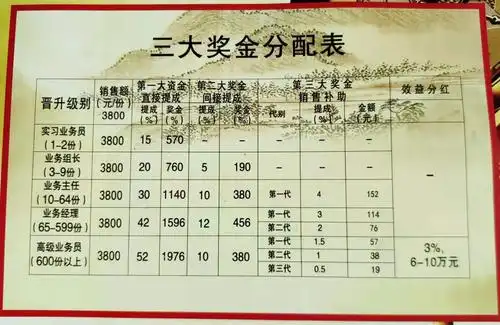 三大奖金分配表
晋升级别 销售额(元/份)3800 第一大资金直接提成 第二大奖金间接提成 第三大奖金销售补助 效益分红
提成(%) 奖金(%) 提成(%) 奖金(%) 代别 提成(%) 金额(元)
实习业务员(1-2份) 3800 15 570 – – – – –
业务组长(3-9份) 3800 20 760 5 190 – – –
业务主任(10-64份) 3800 30 1140 10 380 第一代 4 152 –
业务经理(65-599份) 3800 42 1596 12 456 第一代 3 114
第二代 2 76
高级业务员(600份以上) 3800 52 1976 10 380 第一代 1.5 57 3%,6-10万元
第二代 1 38
第三代 0.5 19